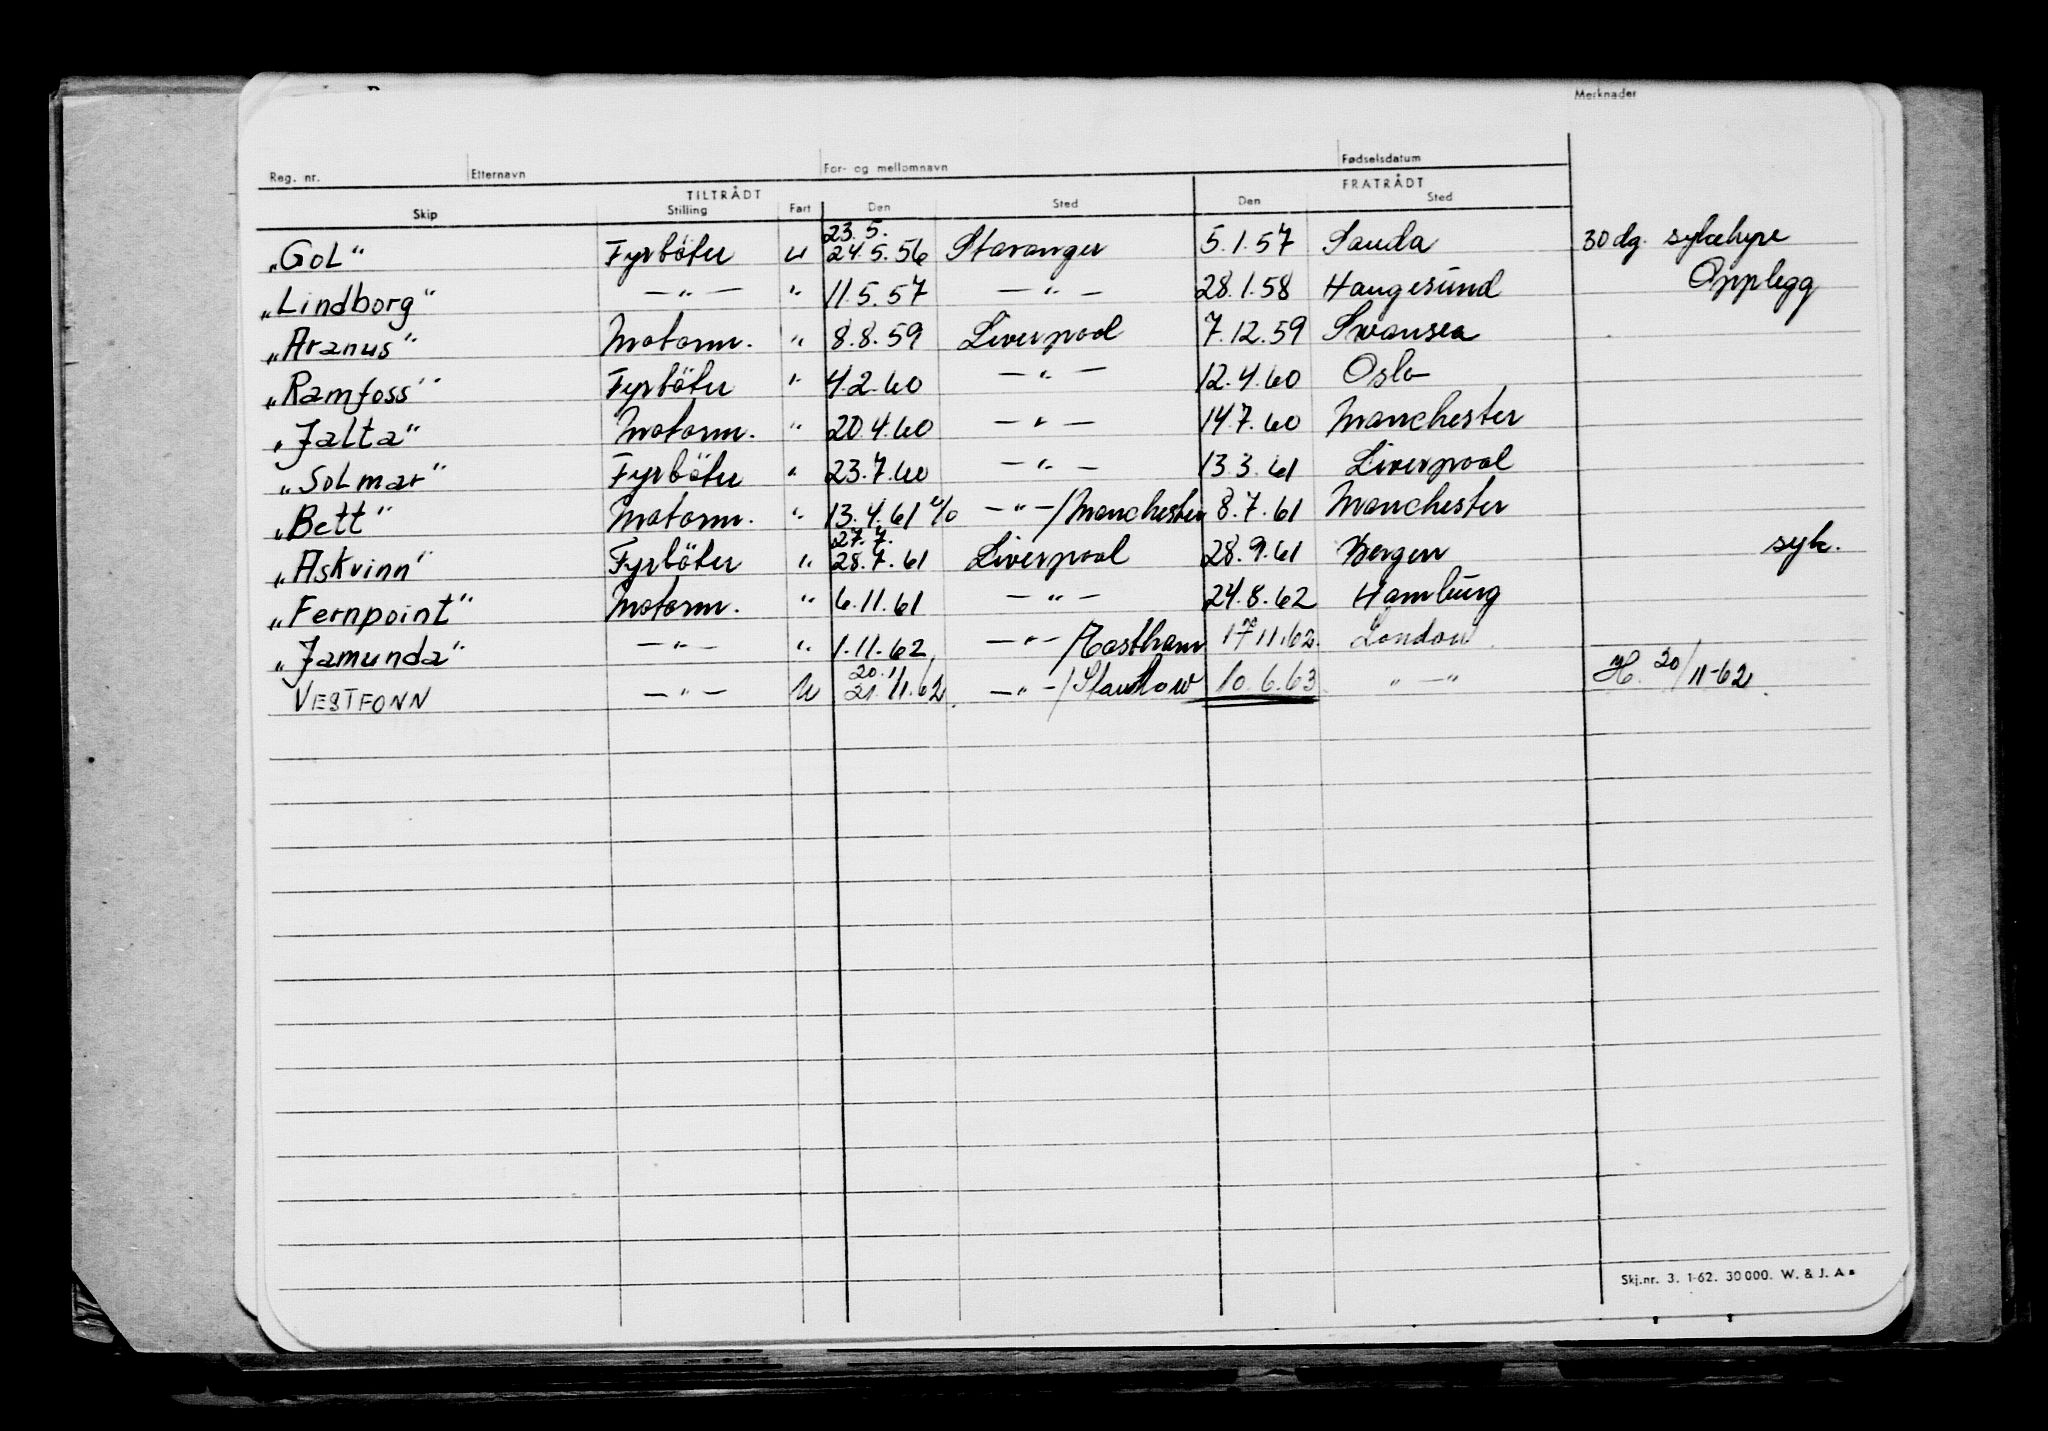 Merknader
Reg. nr. Etternavn For- og mellomnavn Fødselsdatum
TILTRÅDT FRATRÅDT
Skip Stilling Fart Den Sted Den Sted
23.5.
"Gol" Fyrböter u 24.5.56 Stavanger 5.1.57 Sauda 30 dg. sykehyre
"Lindborg" — " — " 11.5.57 — " — 28.1.58 Haugesund Opplegg
"Aranus" Motorm. " 8.8.59 Liverpool 7.12.59 Swansea
"Ramfoss" Fyrböter " 4.2.60 — " — 12.4.60 Oslo
"Jalta" Motorm. " 20.4.60 — " — 14.7.60 Manchester
"Solmar" Fyrböter " 23.7.60 — " — 13.3.61 Liverpool
"Bett" Motorm. " 13.4.61 — " —/Manchester 8.7.61 Manchester
27.7.
"Askvinn" Fyrböter " 28.7.61 Liverpool 28.9.61 Bergen syk.
"Fernpoint" Motorm. " 6.11.61 — " — 24.8.62 Hamburg
"Jamunda" — " — " 1.11.62 — " —/Eastham 17.11.62. London
20.11
VESTFONN — " — U 21.11.62. — " —/Stanlow 10.6.63 " — " H. 20/11-62.
Skj.nr. 3. 1-62. 30 000. W. & J. A s